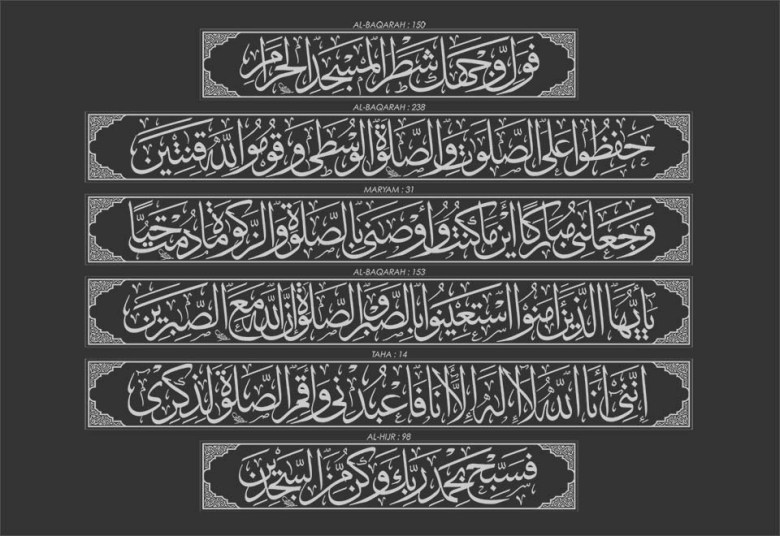 AL-BAQARAH : 150
فَوَلِّ وَجْهَكَ شَطْرَ الْمَسْجِدِ الْحَرَامِ
AL-BAQARAH : 238
حَٰفِظُوا عَلَى الصَّلَوَٰتِ وَالصَّلَوٰةِ الْوُسْطَىٰ وَقُومُوا لِلَّهِ قَٰنِتِينَ
MARYAM : 31
وَجَعَلَنِي مُبَارَكًا أَيْنَ مَا كُنْتُ وَأَوْصَٰنِي بِالصَّلَوٰةِ وَالزَّكَوٰةِ مَا دُمْتُ حَيًّا
AL-BAQARAH : 153
يَٰأَيُّهَا الَّذِينَ اٰمَنُوا اسْتَعِينُوا بِالصَّبْرِ وَالصَّلَوٰةِ إِنَّ اللَّهَ مَعَ الصَّٰبِرِينَ
TAHA : 14
إِنَّنِي أَنَا اللَّهُ لَا إِلَٰهَ إِلَّا أَنَا فَاعْبُدْنِي وَأَقِمِ الصَّلَوٰةَ لِذِكْرِي
AL-HIJR : 98
فَسَبِّحْ بِحَمْدِ رَبِّكَ وَكُنْ مِّنَ السَّٰجِدِينَ